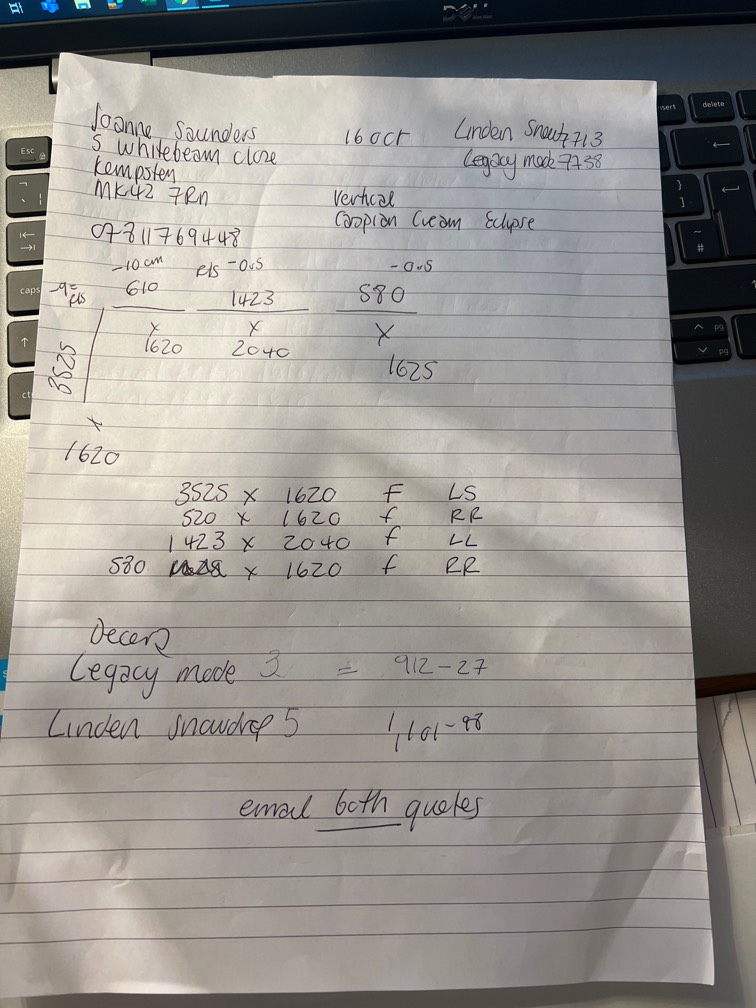 DELL
Joanne Saunders
5 Whitebeam close
Kempston
MK42 7RN
07811769448
16 oct
Linden Snow 7713
Legacy mode 7738
Vertical
Caspian Cream Eclipse
-10cm
610
x
1620
R/S -0.5
1423
x
2040
-0.5
580
x
1625
R/S
3525
x
1620
3525 x 1620 F LS
520 x 1620 f RR
1423 x 2040 f LL
580 x 1620 f RR
Decora
Legacy mode 3 = 912-27
Linden Snowdrop 5 1,101-98
email both quotes
Esc
caps
insert
delete
pg
pg